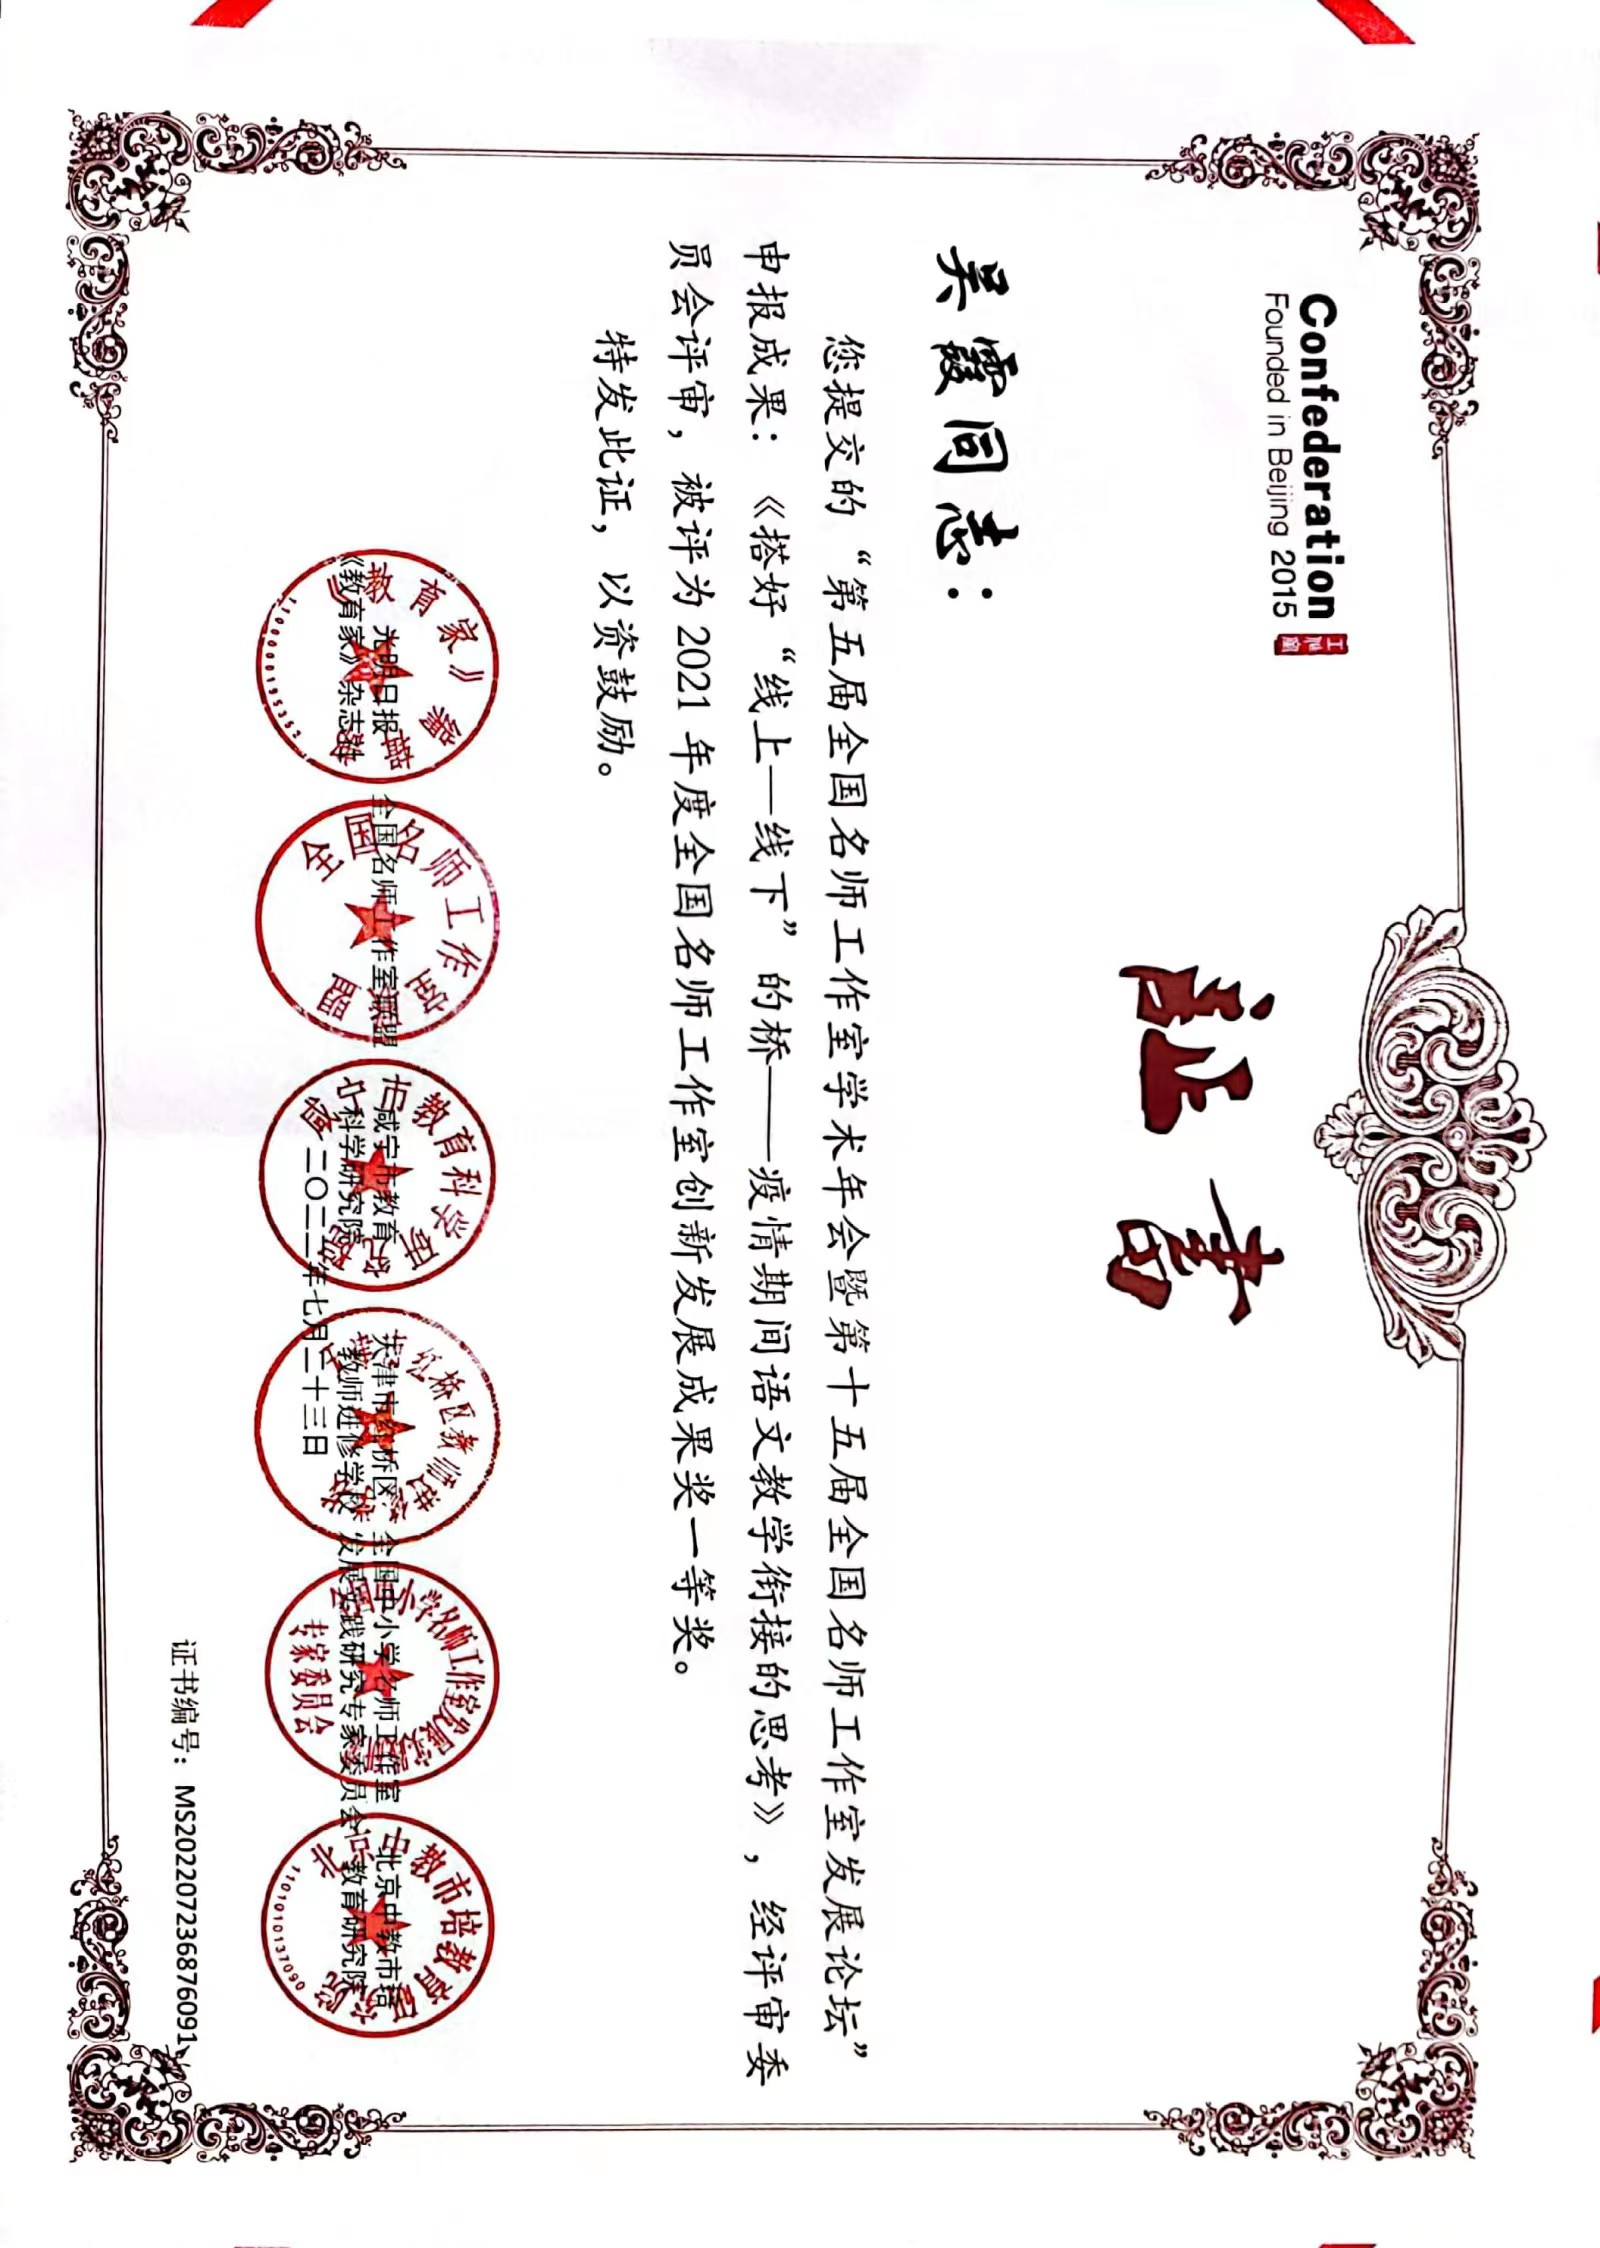 Confederation
Founded in Beijing 2015
证书
吴霞同志：
您提交的“第五届全国名师工作室学术年会暨第十五届全国名师工作室发展论坛”
申报成果：《搭好“线上—线下”的桥——疫情期间语文教学衔接的思考》，经评审委
员会评审，被评为2021年度全国名师工作室创新发展成果奖一等奖。
特发此证，以资鼓励。
光明日报
《教育家》杂志社
全国名师工作室联盟
咸宁市教育
科学研究院
天津市红桥区
教师进修学校
全国中小学名师工作室
发展实践研究专家委员会
北京中教市培
教育研究院
二〇二二年七月二十三日
《教育家》编辑部
1100000195352
全国名师工作室联盟
咸宁市教育科学研究院
专家委员会
北京中教市培教育研究院
1101010137090
证书编号：MS20220723687609１